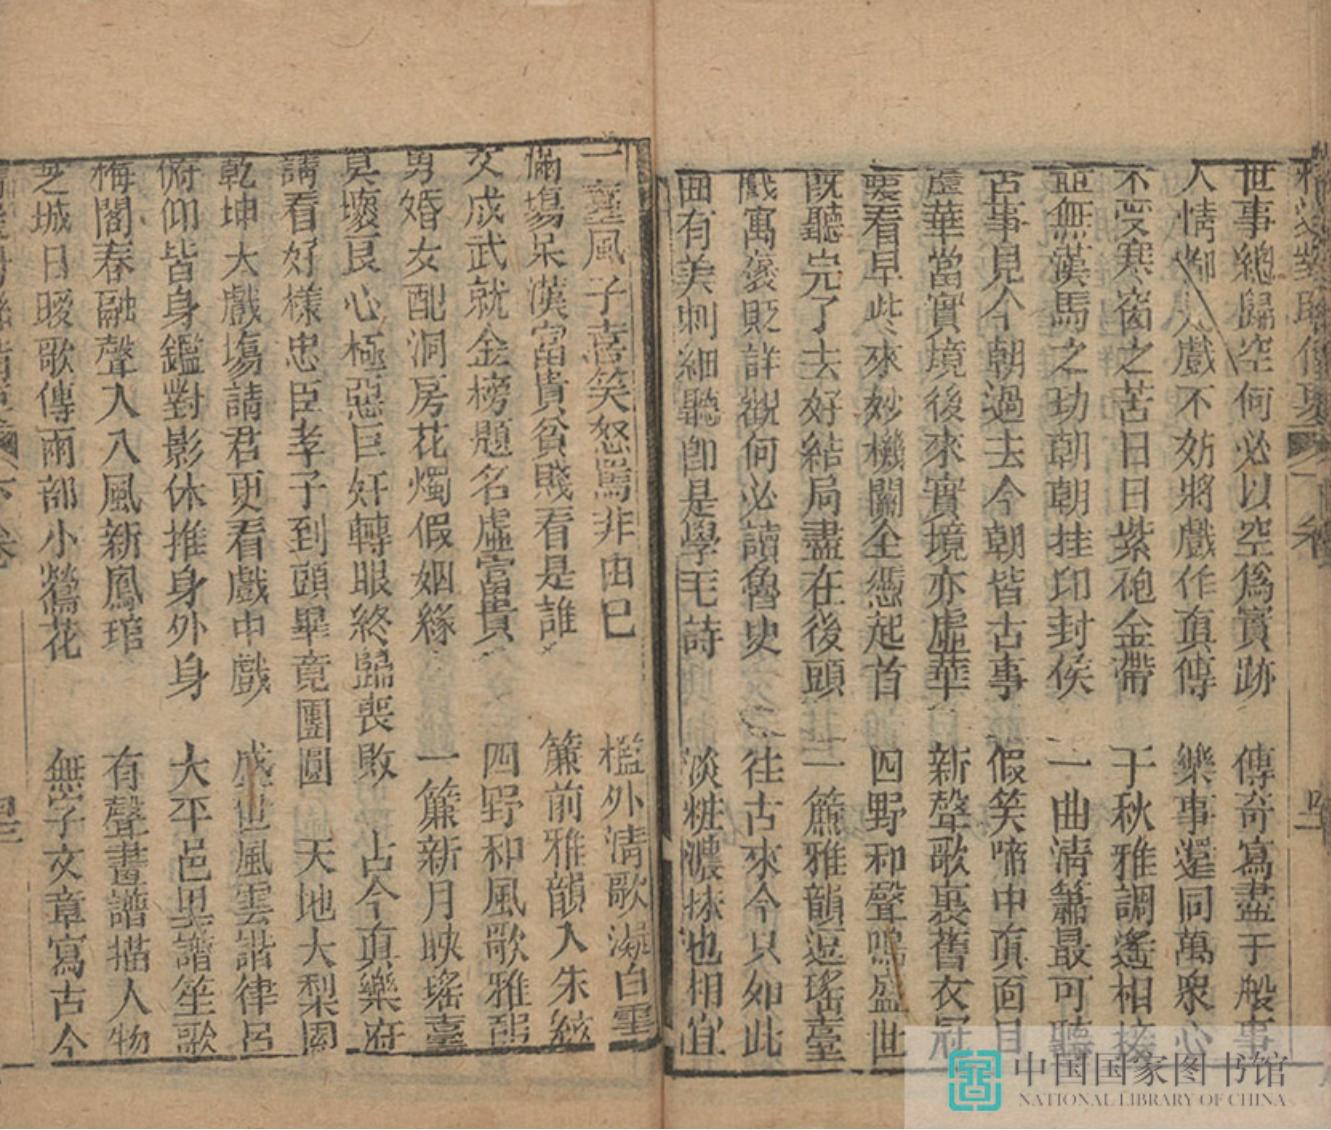 世事總歸空何必以空爲實跡 傳奇寫盡千般事
人情御見戲不妨將戲作眞傳 樂事還同萬衆心
不受寒窗之苦日日紫砲金帶 千秋雅調遙相接
並無漢馬之功朝朝挂印封侯 一曲清簫最可聽
古事見今朝過去今朝皆古事 假笑啼中眞面目
虛華當實境後來實境亦虛華 新聲歌裏舊衣冠
要看早些來妙機關全憑起首 四野和聲鳴盛世
既聽完了去好結局盡在後頭 一簾雅韻逗瑤臺
戲寓褒貶詳觀何必讀魯史 往古來今只如此
曲有美刺細聽卽是學毛詩 淡粧濃抹也相宜
一臺風子喜笑怒罵非由巳 檻外清歌凝白雪
滿場呆漢富貴貧賤看是誰 簾前雅韻入朱絃
文成武就金榜題名虛富貴 四野和風歌雅
男婚女配洞房花燭假姻緣 一簾新月映瑤臺
莫壞良心極惡巨奸轉眼終歸喪敗 占今眞樂府
請看好樣忠臣孝子到頭畢竟團圓 天地大梨園
乾坤大戲塲請君更看戲中戲 盛世風雲諧律呂
俯仰皆身鑑對影休推身外身 大平邑里譜笙歌
梅閣春融聲入八風新鳳琯 有聲畫譜描人物
芝城日暖歌傳兩部小鶯花 無字文章寫古今